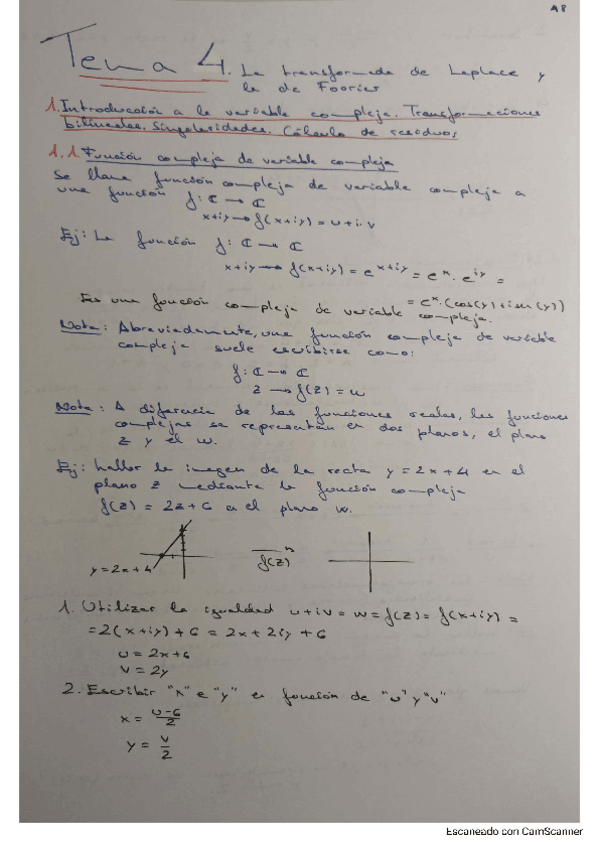 A8
Tema 4. La transformada de Laplace y
la de Fourier
1. Introducción a la variable compleja. Transformaciones
bilineales. Singularidades. Cálculo de residuos
1.1. Función compleja de variable compleja
Se llama función compleja de variable compleja a
una función f: ℂ → ℂ
x+iy → f(x+iy) = u+i·v
Ej: La función f: ℂ → ℂ
x+iy → f(x+iy) = e^{x+iy} = e^x · e^{iy} =
= e^x · (cos(y) + i sen(y))
Es una función compleja de variable compleja.
Nota: Abreviadamente, una función compleja de variable
compleja suele escribirse como:
f: ℂ → ℂ
z → f(z) = w
Nota: A diferencia de las funciones reales, las funciones
complejas se representan en dos planos, el plano
z y el w.
Ej: hallar la imagen de la recta y = 2x+4 en el
plano z mediante la función compleja
f(z) = 2z+6 en el plano w.
y = 2x+4
f(z)
1. Utilizar la igualdad u+iv = w = f(z) = f(x+iy) =
= 2(x+iy) + 6 = 2x + 2iy + 6
u = 2x+6
v = 2y
2. Escribir "x" e "y" en función de "u" y "v"
x = (u-6)/2
y = v/2
Escaneado con CamScanner